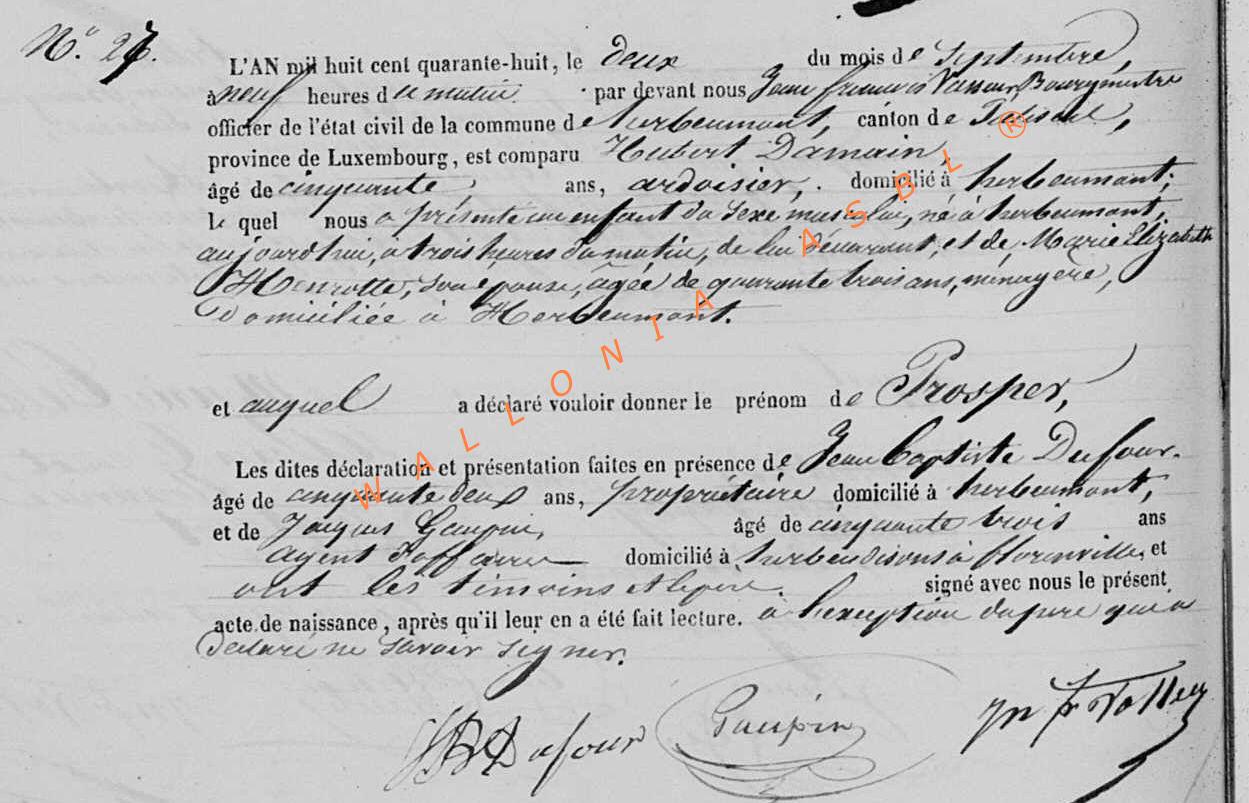 N° 27.
L'AN mil huit cent quarante-huit, le deux du mois de Septembre,
à neuf heures du matin. par devant nous Jean françois Bourgmestre
officier de l'état civil de la commune de herbeumont, canton de Paliseul,
province de Luxembourg, est comparu Hubert Damain,
âgé de cinquante ans, ardoisier, domicilié à herbeumont;
le quel nous a présenté un enfant du sexe masculin, né à herbeumont,
aujourd'hui, à trois heures du matin, de lui déclarant, et de Marie Elizabeth
Henrotte, son epouse, âgée de quarante trois ans, ménagère,
Domiciliée à Herbeumont.
et auquel a déclaré vouloir donner le prénom de Prosper,
Les dites déclaration et présentation faites en présence de Jean Baptiste Dufour.
âgé de cinquante deux ans, propriétaire domicilié à herbeumont,
et de Jacques Gaupin, âgé de cinquante trois ans
agent d'affaires domicilié à florenville, et
ont les témoins signé avec nous le présent
acte de naissance, après qu'il leur en a été fait lecture. à l'exception du père qui a
Declaré ne savoir signer.
JB Dufour Gaupin
WALLONIA ASBL ®